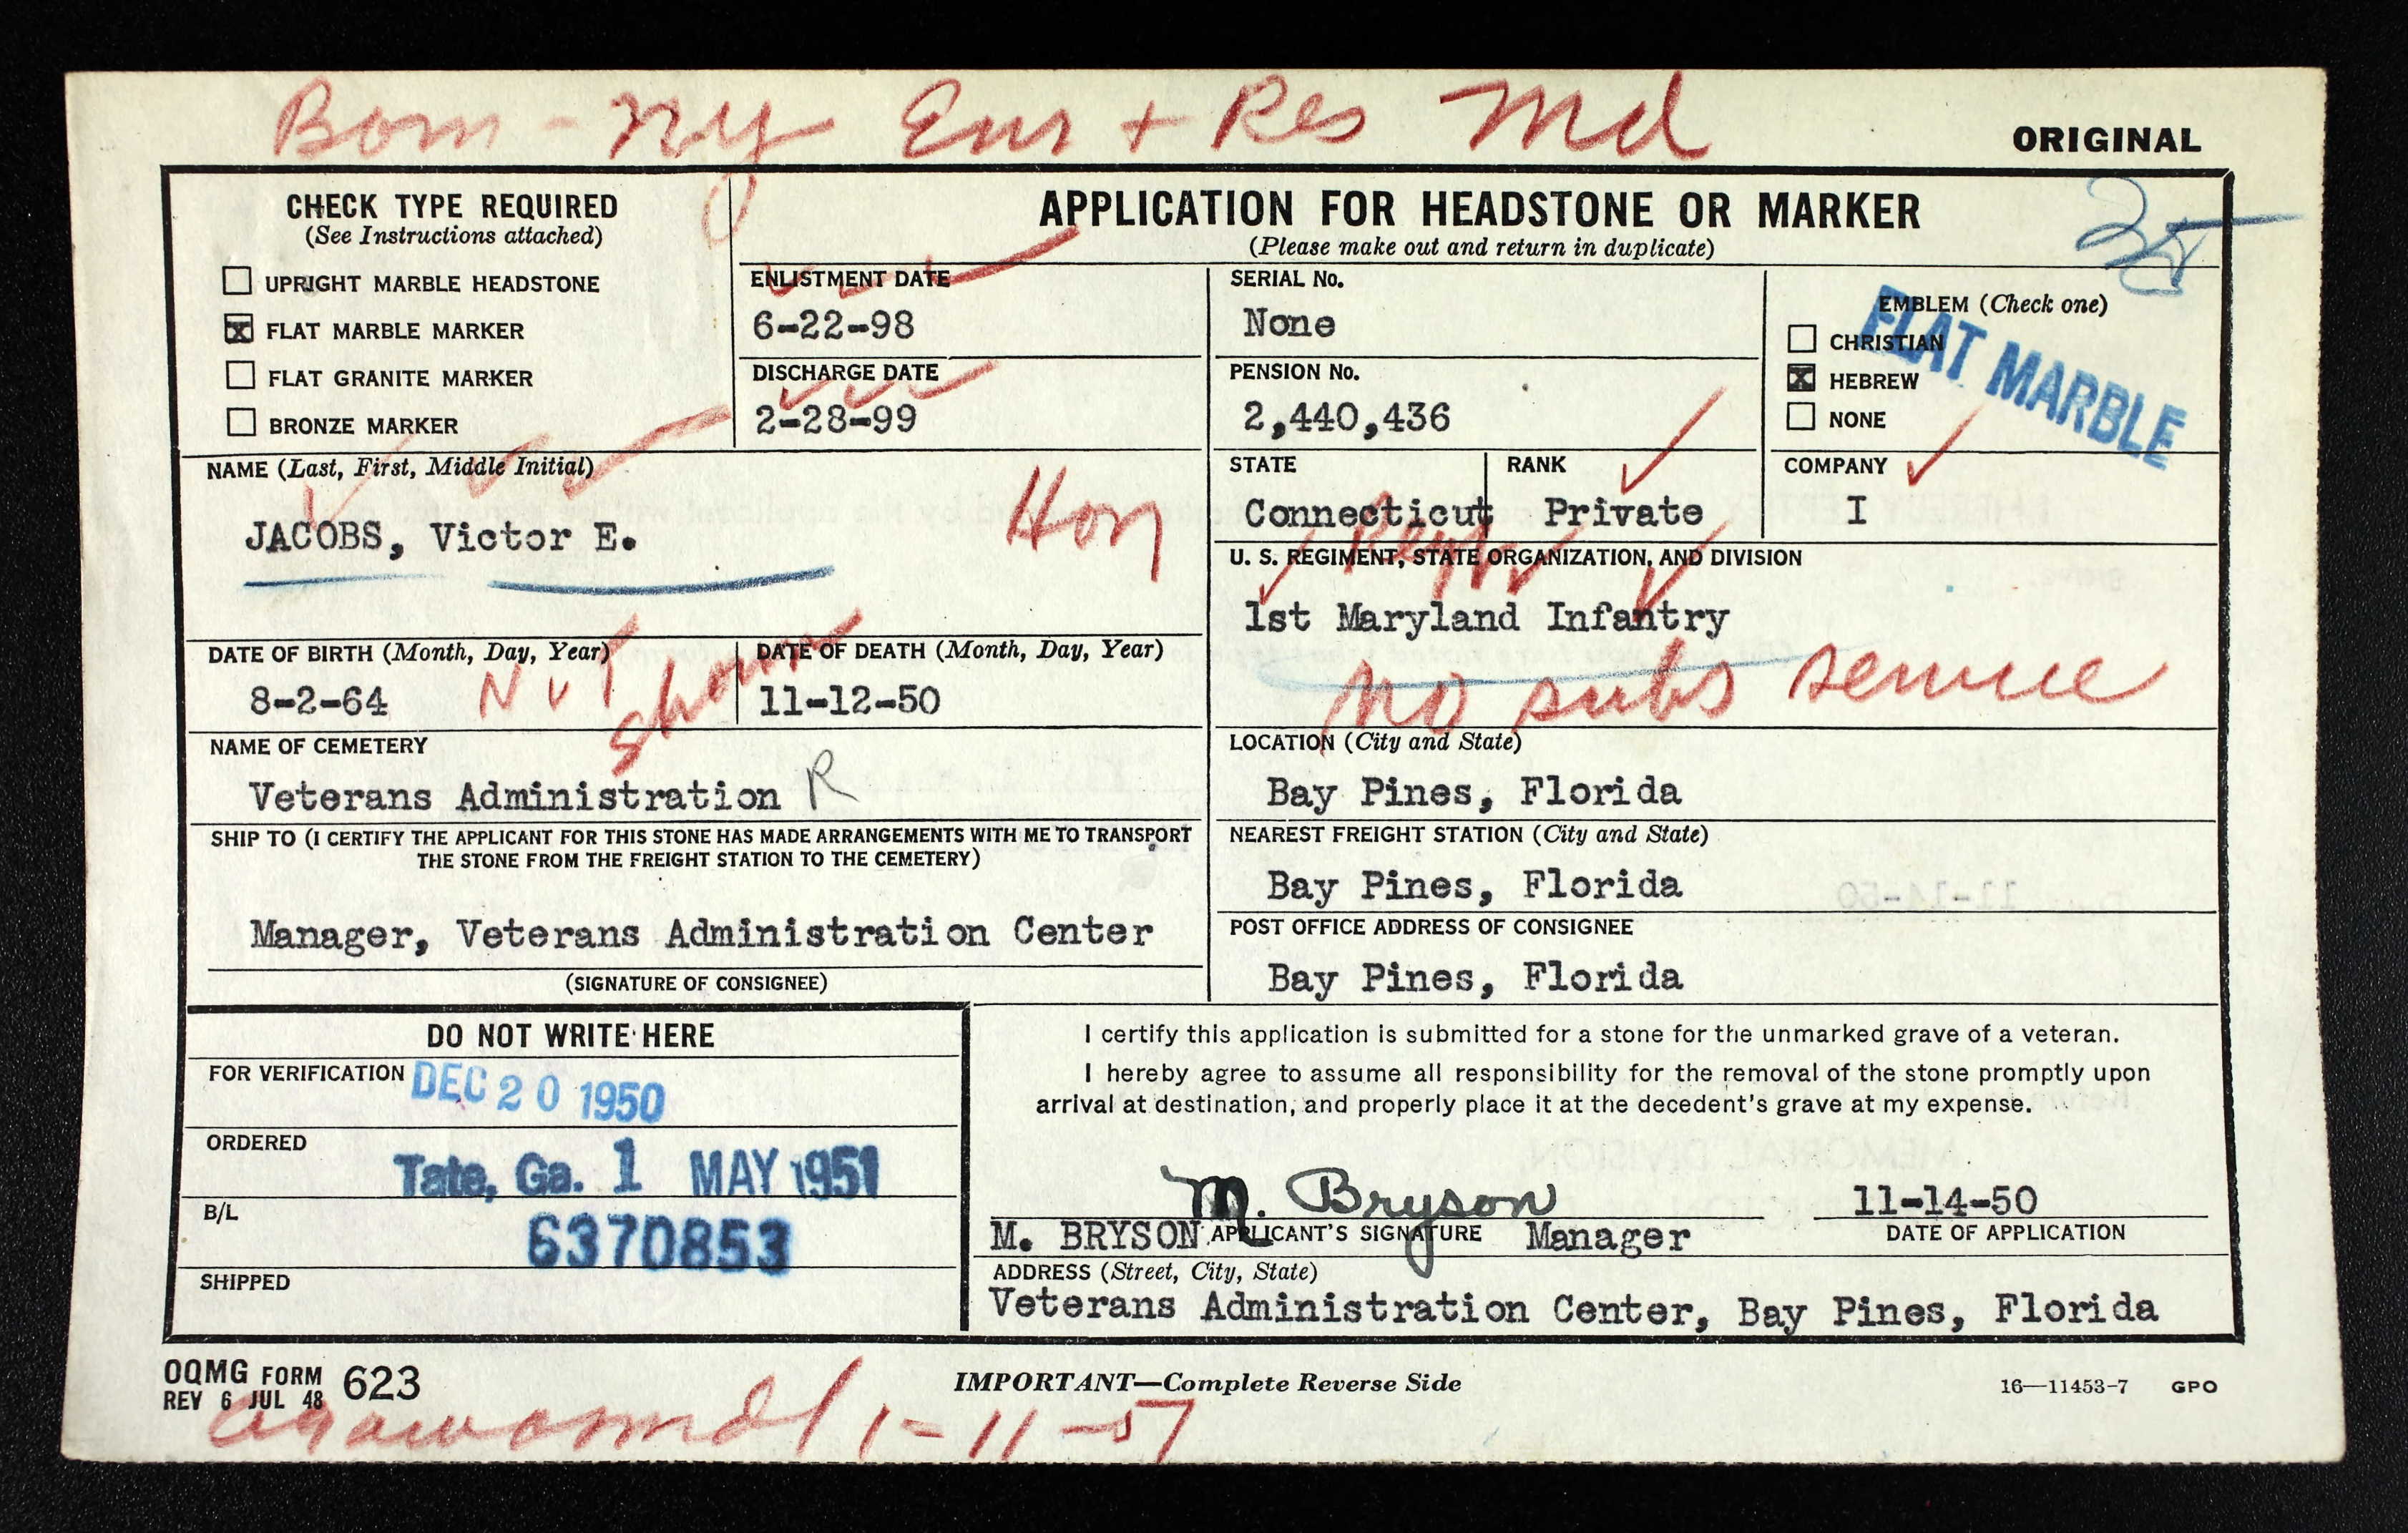 Born - NY Enr + Res Md
ORIGINAL
CHECK TYPE REQUIRED
(See Instructions attached)
UPRIGHT MARBLE HEADSTONE
x FLAT MARBLE MARKER
FLAT GRANITE MARKER
BRONZE MARKER
APPLICATION FOR HEADSTONE OR MARKER
(Please make out and return in duplicate)
ENLISTMENT DATE
6-22-98
DISCHARGE DATE
2-28-99
SERIAL No.
None
PENSION No.
2,440,436
EMBLEM (Check one)
CHRISTIAN
x HEBREW
NONE
FLAT MARBLE
NAME (Last, First, Middle Initial)
JACOBS, Victor E.
Hon
STATE
Connecticut
RANK
Private
COMPANY
I
U. S. REGIMENT, STATE ORGANIZATION, AND DIVISION
Regt
1st Maryland Infantry
No subs service
DATE OF BIRTH (Month, Day, Year)
8-2-64
Not shown
DATE OF DEATH (Month, Day, Year)
11-12-50
NAME OF CEMETERY
Veterans Administration R
LOCATION (City and State)
Bay Pines, Florida
SHIP TO (I CERTIFY THE APPLICANT FOR THIS STONE HAS MADE ARRANGEMENTS WITH ME TO TRANSPORT
THE STONE FROM THE FREIGHT STATION TO THE CEMETERY)
Manager, Veterans Administration Center
(SIGNATURE OF CONSIGNEE)
NEAREST FREIGHT STATION (City and State)
Bay Pines, Florida
POST OFFICE ADDRESS OF CONSIGNEE
Bay Pines, Florida
DO NOT WRITE HERE
FOR VERIFICATION DEC 20 1950
ORDERED
Tate, Ga. 1 MAY 1951
B/L
6370853
SHIPPED
I certify this application is submitted for a stone for the unmarked grave of a veteran.
I hereby agree to assume all responsibility for the removal of the stone promptly upon
arrival at destination, and properly place it at the decedent's grave at my expense.
M. Bryson
11-14-50
M. BRYSON APPLICANT'S SIGNATURE Manager
DATE OF APPLICATION
ADDRESS (Street, City, State)
Veterans Administration Center, Bay Pines, Florida
OQMG FORM 623
REV 6 JUL 48
IMPORTANT—Complete Reverse Side
16—11453-7 GPO
1-11-51